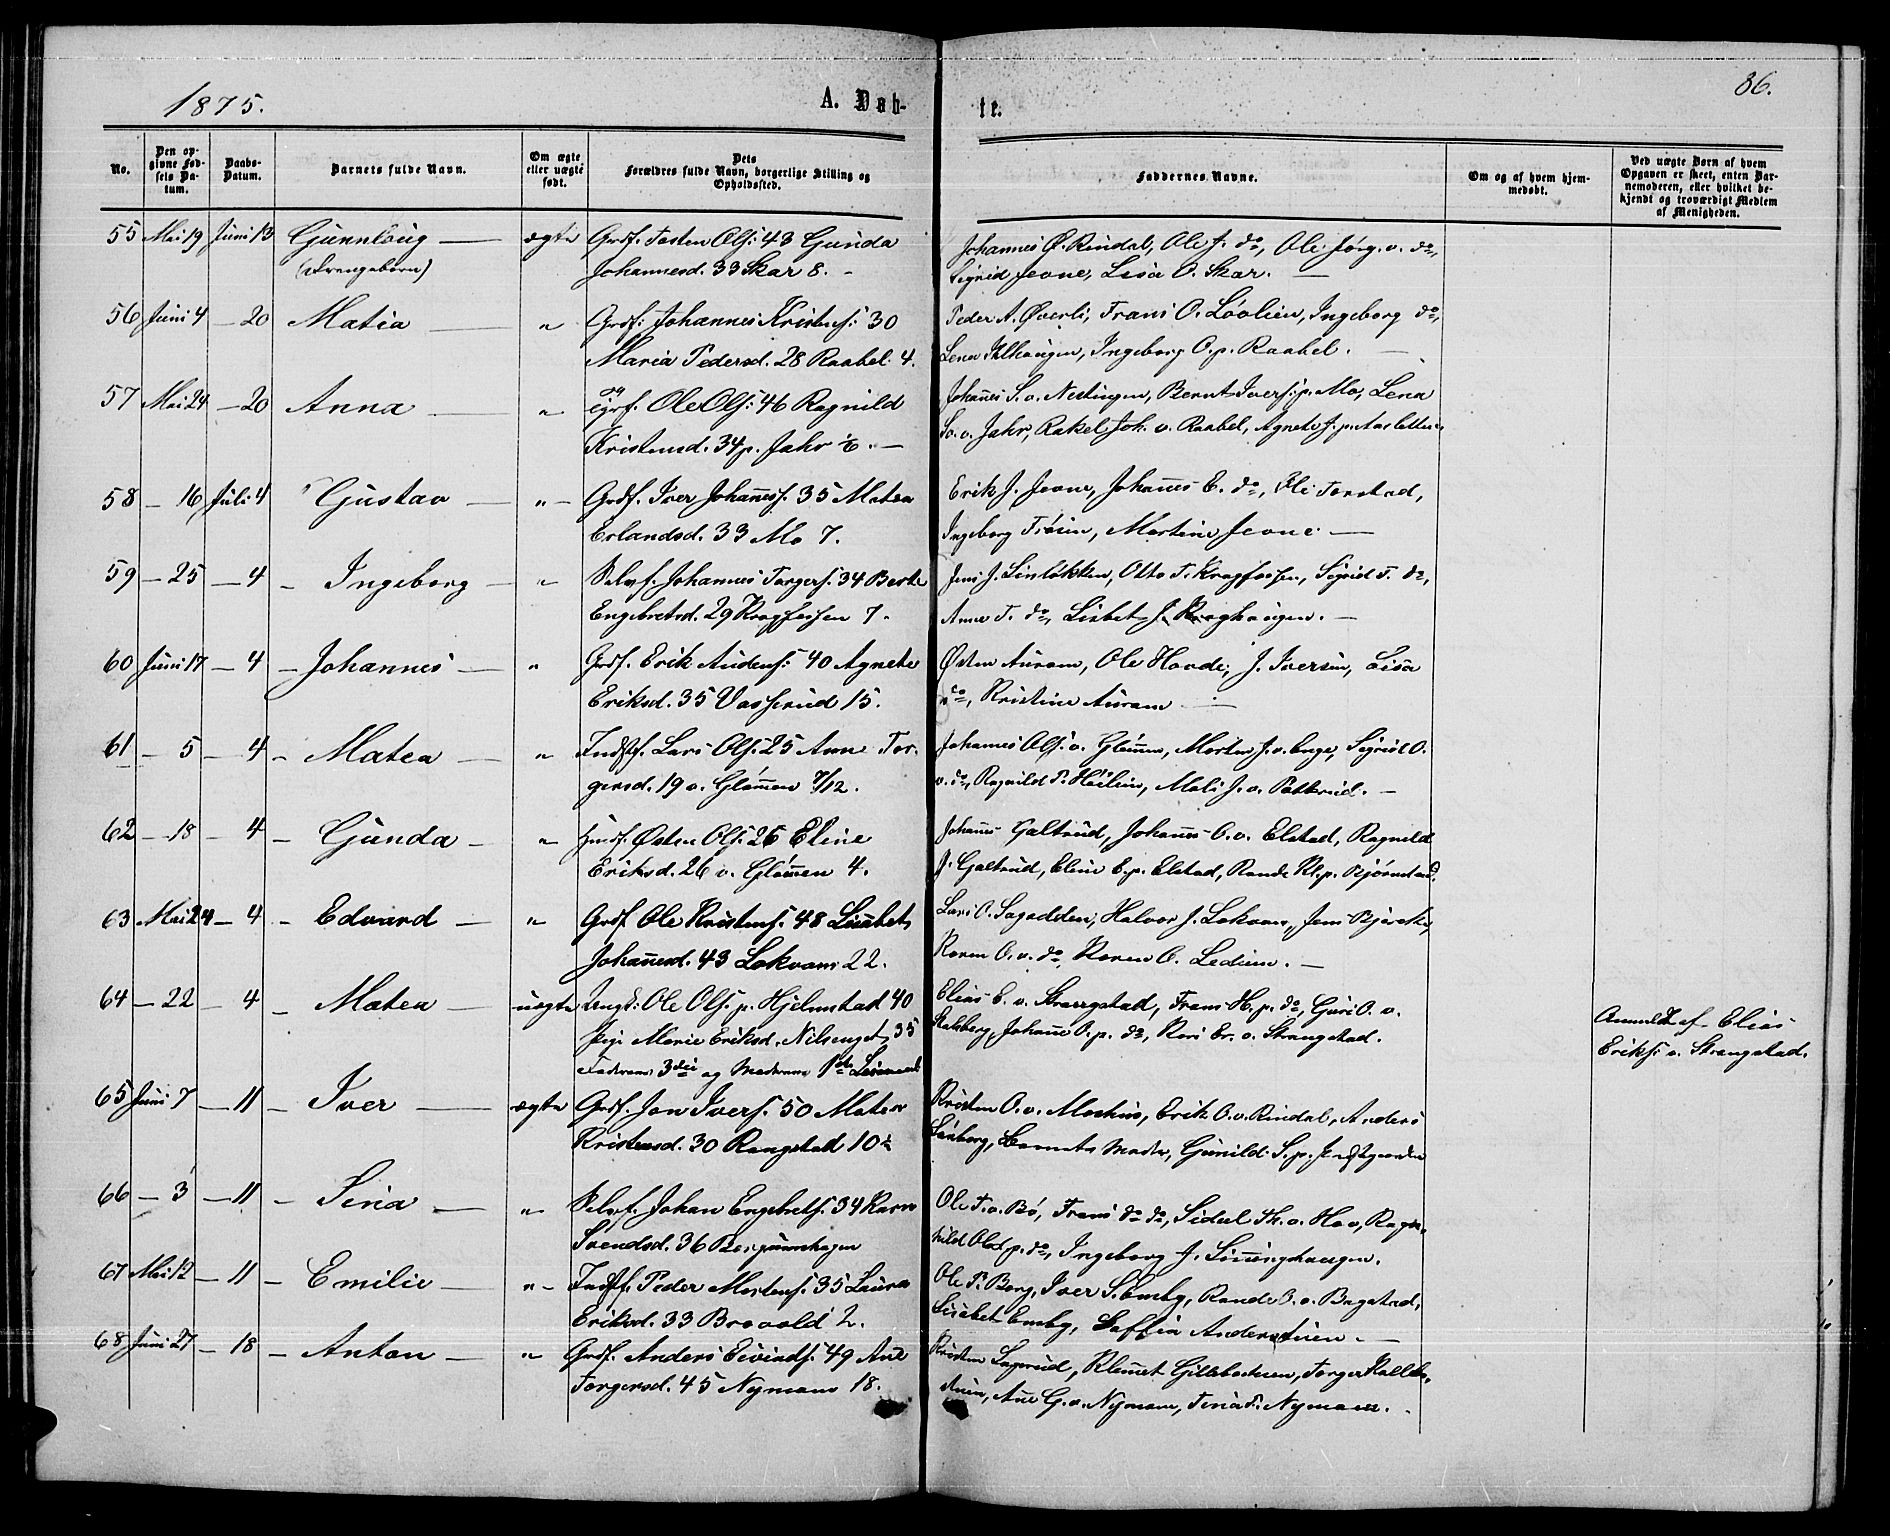 1875.
A. Døb-
te.
86.
No.
Den op-
givne Fød-
sels Da-
tum.
Daabs-
Datum.
Barnets fulde Navn.
Om ægte
eller uægte
født.
Dets
Forældres fulde Navn, borgerlige Stilling og
Opholdssted.
Faddernes Navne.
Om og af hvem hjem-
medøbt.
Ved uægte Børn af hvem
Opgaven er skeet, enten Bar-
nemoderen, eller hvilket be-
kjendt og troværdigt Medlem
af Menigheden.
55 Mai 19 Juni 13 Gunnloug — ægte Grdf. Tosten Ols: 43 Gunda
(Drengebarn) Johannesd. 33 Skar 8. -
Johannes O. Rindal, Ole J. do, Ole Jørg. v. do,
Sigrid Jevne, Lisa O. Skar. —
56 Juni 4 — 20 Matia — " Grdf: Johannes Kristens: 30
Maria Pedersd. 28 Raabel 4.
Peder A. Øverli, Frans O. Løvlien, Ingeborg do,
Lena Ihlhaugen, Ingeborg O. p. Raabel. —
57 Mai 24 — 20 Anna — " Ole Ols: 46 Ragnild
Kristensd. 34 p. Jahr
Johañes S. v. Nestingen, Bernt Ivers: p. Mo, Lena
v. Jahr, Rakel Joh. v. Raabel, Agnete J. p.
58 — 16 Juli 4 Gustav — " — Grdf. Iver Johañess. 35 Matea
Erlandsd. 33 Mo 7.
Erik J. Jevne, Johañes E. do, Eli Torstad,
Ingeborg Trøim, Martine Jevne —
59 — 25 — 4 — Ingeborg — " Selvf. Johannes Torgers. 34 Berte
Engebretsd. 29 Kragfossen 7.
Jens J. Linløkken, Otto T. Kragfossen, Sigrid T. do,
Anne T. do, Lisbet J. Kraghaugen. —
60 Juni 17 — 4 — Johannes — " Grdf. Erik Audens: 40 Agnete
Eriksd. 35 Vasserud 15.
Østen Auram, Ole Hovde, J. Iversen, Lisa
do, Kristine Auram —
61 — 5 — 4 — Matea — " Indstf. Lars Ols. 25 Anne Tor-
gersd. 19 v. Glømmen 7/12.
Johannes Ols. v. Glømmen, Morten J. v. Enge, Sigrid O.
v. do, Ragnild P. Høilien, Mali J. v.
62 — 18 — 4 — Gunda — " Husf. Østen Ols. 26 Eline
Eriksd. 26 v. Glømmen 4.
Johañes Galtrud, Johañes O. v. Elstad, Ragnild
J. Galtrud, Eline E. p. Elstad, Rande Kl. p. Bjørnstad.
63 Mai 24 — 4 — Edvard — " Grdf. Ole Kristens. 48 Lisabet
Johañesd. 43 Lokvam 22.
Lars O. Sagadden, Halvor J. Lokvam, Jens Bjerke,
Karen O. v. do, Karen O.
64 — 22 — 4 — Matea — uægte Ungk: Ole Ols. p. Hjelmstad 40
Pige Marie Eriksd. Nilsenget 35
Faderens 3die og Moderens 1ste Leiermaal
Elias E. v. Strangstad, Frans H. p. do, Guri O. v.
Johañe O. p. do, Kari Er. v. Strangstad.
Anmeldt af Elias
Eriks: v. Strangstad.
65 Juni 7 — 11 — Iver — ægte Grdf. Jon Ivers. 50 Matea
Kristensd. 30 Rangstad 10
Kristen O. v. Moshus, Erik O. v. Rindal, Anders
Barnets Moder, Gunild S. p.
66 — 3 — 11 — Siria — " Selvf. Johan Engebrets. 34 Karen
Svendsd. 36
Ole T. v. Bø, Frans do do, Sidsel Th. v. Hov, Rag-
nild Olsd. p. do, Ingeborg J.
67 Mai 12 — 11 — Emilie — " — Indstf. Peder Mortens. 35 Laura
Eriksd. 33 Brovold 2.
Ole P. Berg, Iver S. Emby, Rande O. v. Bagstad,
Lisabet Emby, Saffia —
68 Juni 27 — 18 — Anton — " Grdf. Anders Eivinds. 49 Añe
Torgersd. 45 Nymoen 18.
Kristen Lagerud, Klemet Gillebostuen, Torger
Añe G. v. Nymoen, Siria T. Nymoen.